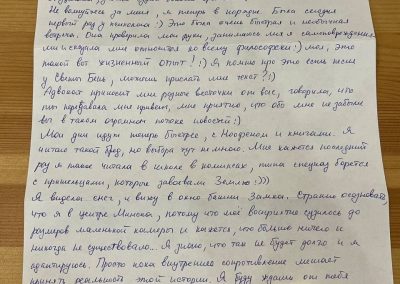 Не волнуйтесь за меня, я теперь в порядке. Была сегодня
первый раз у психолога :) Это была очень быстрая и необычная
встреча. Она проверила мои руки, занималась ли я самоповреждениями
и сказала мне относиться ко всему философски :) мол, это
такой вот жизненный опыт! :) Я помню про это есть песня
у Светы Бень, можешь прислать мне текст?!)
Адвокат приносит мне редкие весточки от вас, говорила, что
ты передавала мне привет, мне приятно, что обо мне не забыли
вы в таком огромном потоке новостей :)
Мои дни идут теперь быстрее, с Ноофеном и книгами. Я
читаю такой бред, но выбора тут немного. Мне кажется последний
раз я такое читала в школе в комиксах, типа спецназ борется
с пришельцами, которые завоевали Землю :)))
Я видела снег, я вижу в окно башни Замка. Странно осознавать,
что я в центре Минска, потому что моё восприятие сузилось до
размеров маленькой камеры и кажется, что больше ничего и
никогда не существовало. Я знаю, что так не будет долго и я
адаптируюсь. Просто пока внутреннее сопротивление мешает
принять реальность этой истории. Я буду ждать от тебя